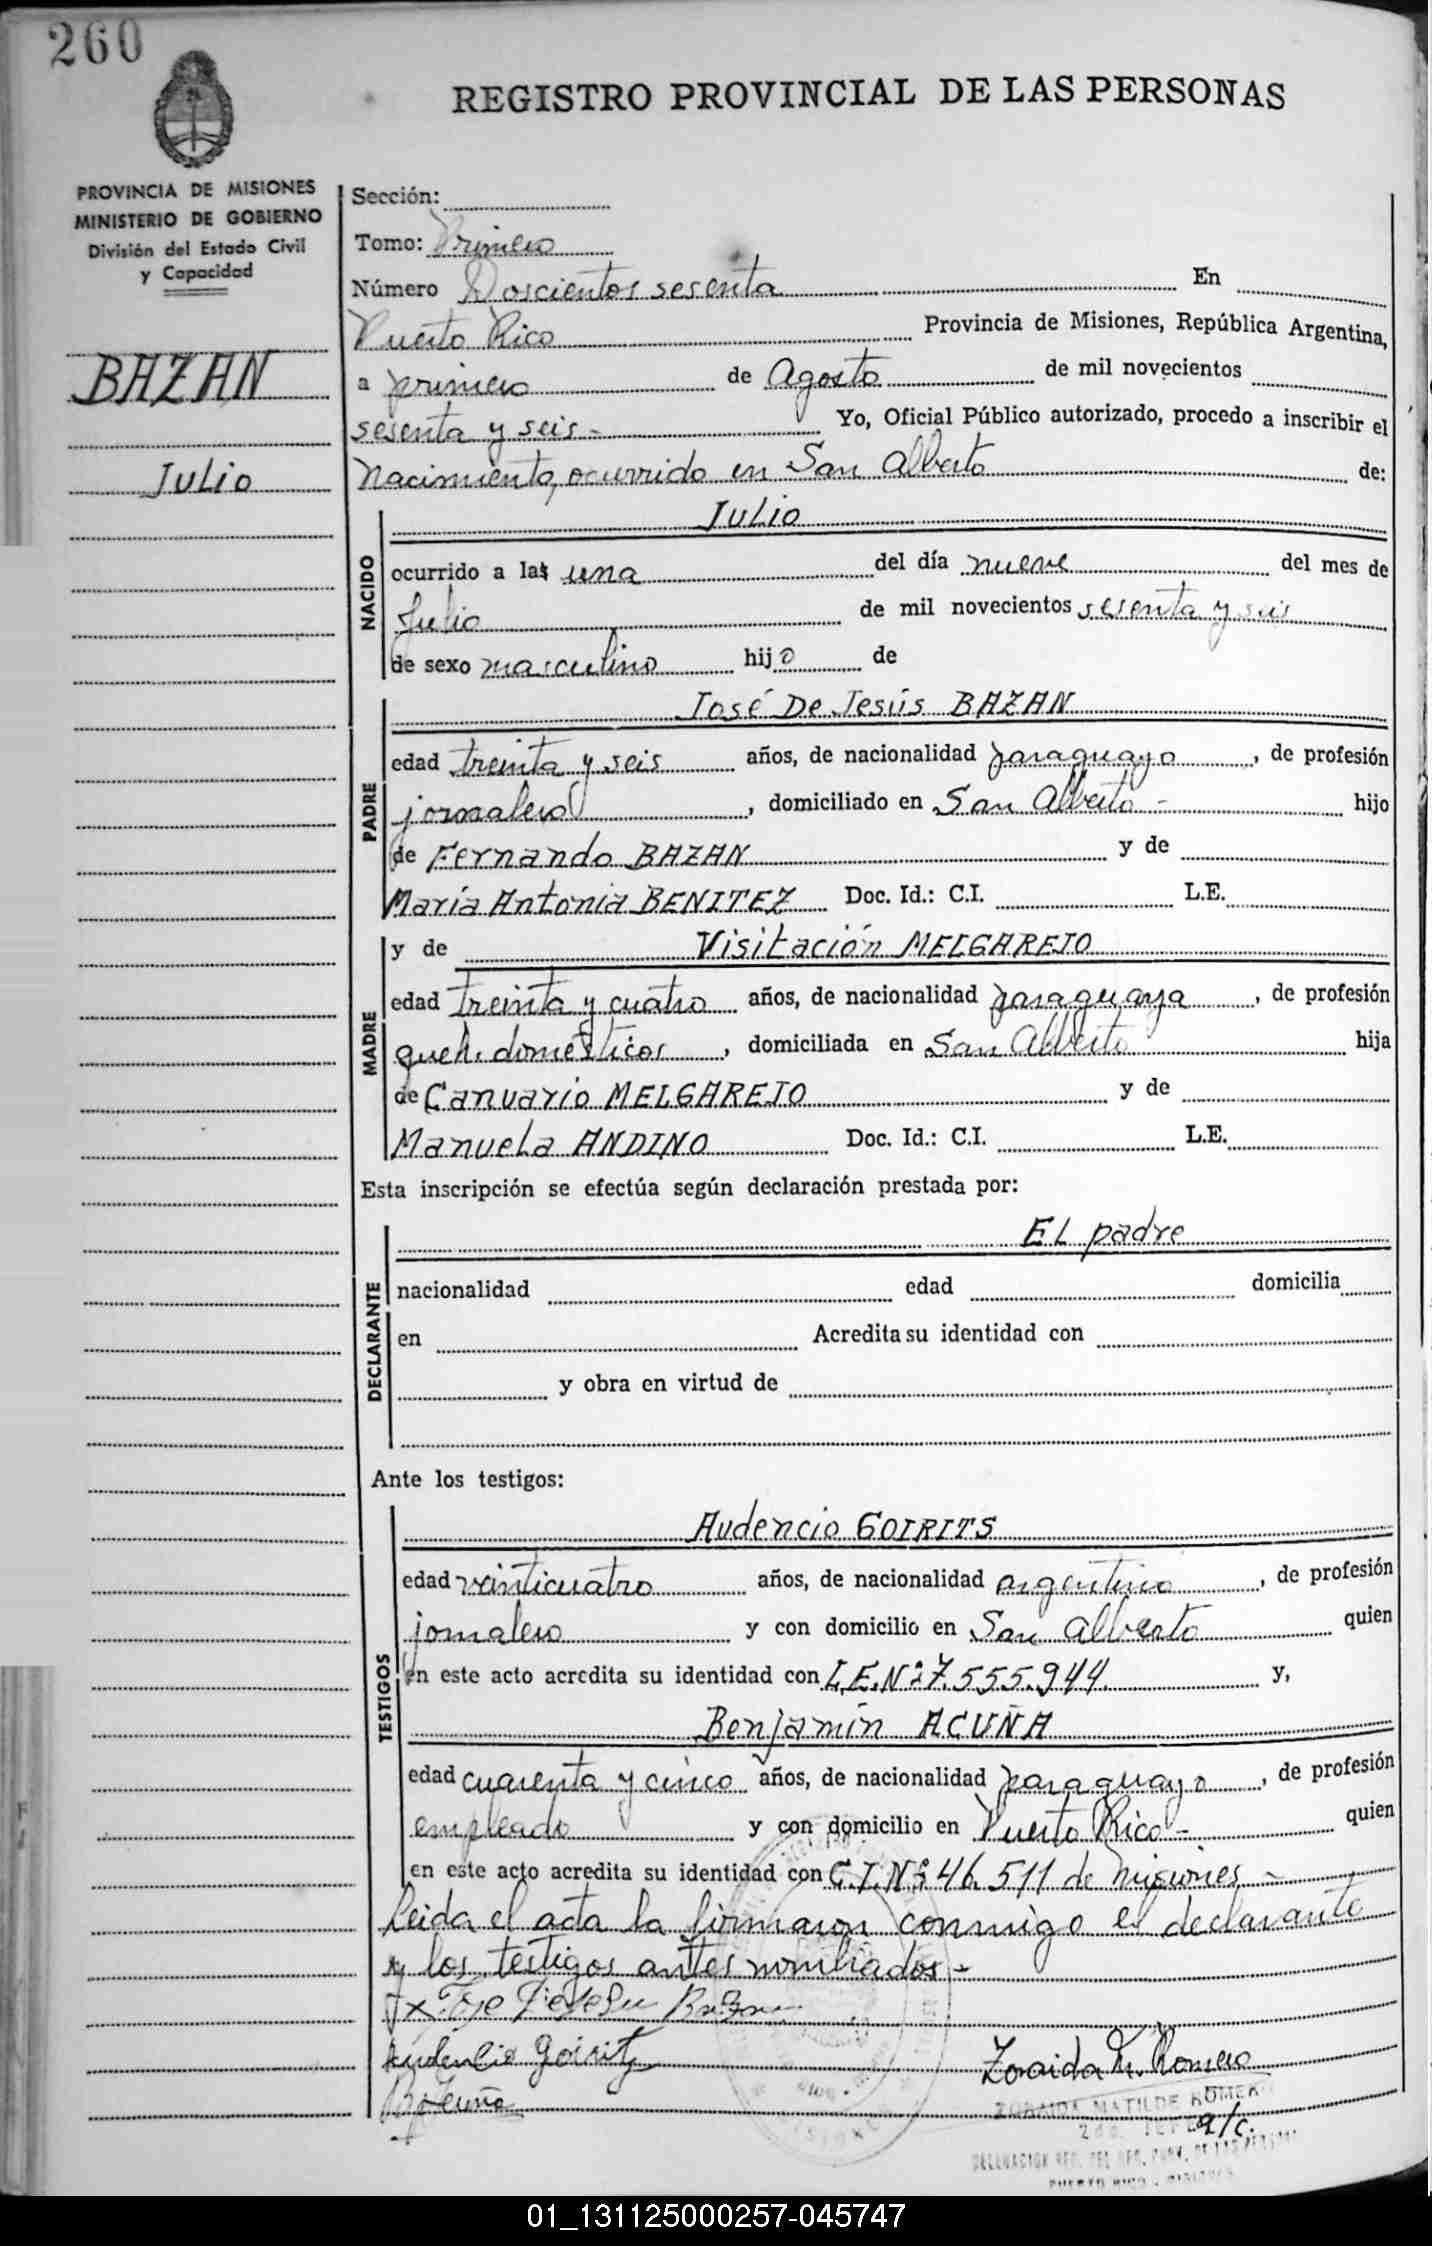 260
REGISTRO PROVINCIAL DE LAS PERSONAS
PROVINCIA DE MISIONES
MINISTERIO DE GOBIERNO
División del Estado Civil
y Capacidad
BAZAN
JULIO
Sección:
Tomo: Primero
Número Doscientos sesenta En
Puerto Rico Provincia de Misiones, República Argentina,
a primero de Agosto de mil novecientos
sesenta y seis - Yo, Oficial Público autorizado, procedo a inscribir el
nacimiento, ocurrido en San Alberto de:
NACIDO
JULIO
ocurrido a las una del día nueve del mes de
Julio de mil novecientos sesenta y seis
de sexo masculino hijo de
PADRE
José De Jesús BAZAN
edad treinta y seis años, de nacionalidad paraguayo, de profesión
jornalero, domiciliado en San Alberto - hijo
de Fernando BAZAN y de
María Antonia BENITEZ Doc. Id.: C.I. L.E.
MADRE
y de Visitación MELGAREJO
edad treinta y cuatro años, de nacionalidad paraguaya, de profesión
queh. domésticos, domiciliada en San Alberto hija
de Canuario MELGAREJO y de
Manuela ANDINO Doc. Id.: C.I. L.E.
Esta inscripción se efectúa según declaración prestada por:
DECLARANTE
EL padre
nacionalidad edad domicilia
en Acredita su identidad con
y obra en virtud de
Ante los testigos:
TESTIGOS
Audencio GOIRITS
edad veinticuatro años, de nacionalidad argentino, de profesión
jornalero y con domicilio en San Alberto quien
en este acto acredita su identidad con L.E.Nº 7.555.944 y,
Benjamín ACUÑA
edad cuarenta y cinco años, de nacionalidad paraguayo, de profesión
empleado y con domicilio en Puerto Rico - quien
en este acto acredita su identidad con C.I.Nº 46.511 de Misiones -
Leida el acta la firmaron conmigo el declarante
y los testigos antes nombrados -
Audencio Goiritz
Zoraida M. Romero
B Acuña
ZORAIDA MATILDE ROMERO
a/c.
PUERTO RICO - MISIONES
01_131125000257-045747